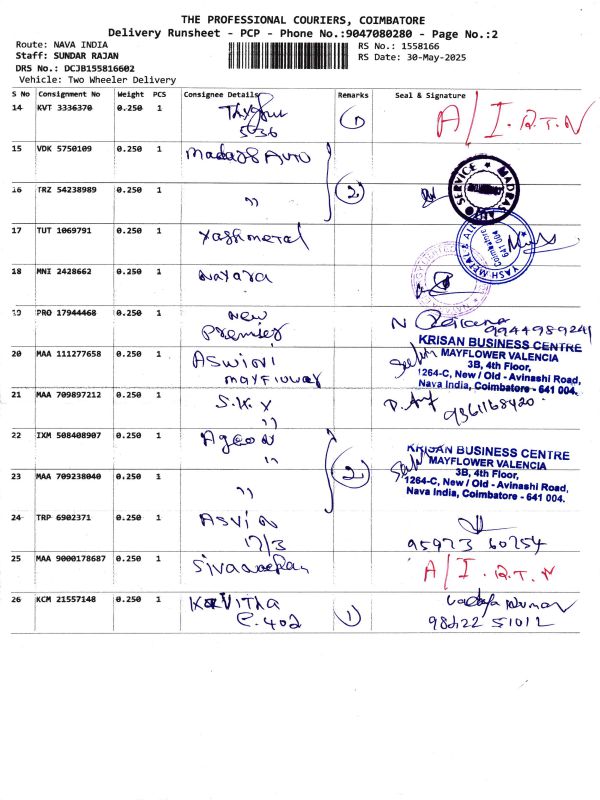 THE PROFESSIONAL COURIERS, COIMBATORE
Delivery Runsheet - PCP - Phone No.:9047080280 - Page No.:2
Route: NAVA INDIA
Staff: SUNDAR RAJAN
DRS No.: DCJB155816602
Vehicle: Two Wheeler Delivery
RS No.: 1558166
RS Date: 30-May-2025
S No Consignment No Weight PCS Consignee Details Remarks Seal & Signature
14 KVT 3336370 0.250 1 1 A/I.R.T.N
5036
15 VDK 5750109 0.250 1 Madras Auto
16 TRZ 54238989 0.250 1 " 2 SERVICE * MADRAS
17 TUT 1069791 0.250 1 Yashmetal YASH METAL & ALL Coimbatore 641 004
18 MNI 2428662 0.250 1 Nayara
19 PRO 17944468 0.250 1 New
Premier 9944989241
20 MAA 111277658 0.250 1 Aswini
mayflower
KRISAN BUSINESS CENTRE
MAYFLOWER VALENCIA
3B, 4th Floor,
1264-C, New / Old - Avinashi Road,
Nava India, Coimbatore - 641 004.
21 MAA 709897212 0.250 1 S.K.Y 9361168420
"
22 IXM 508408907 0.250 1 Ageon
"
KRISAN BUSINESS CENTRE
MAYFLOWER VALENCIA
3B, 4th Floor,
1264-C, New / Old - Avinashi Road,
Nava India, Coimbatore - 641 004.
23 MAA 709238040 0.250 1 " 2
24 TRP 6902371 0.250 1 ASVIN
17/3 95973 60754
25 MAA 9000178687 0.250 1 A/I.R.T.N
26 KCM 21557148 0.250 1 KAVITHA 1
C.402 98422 51012